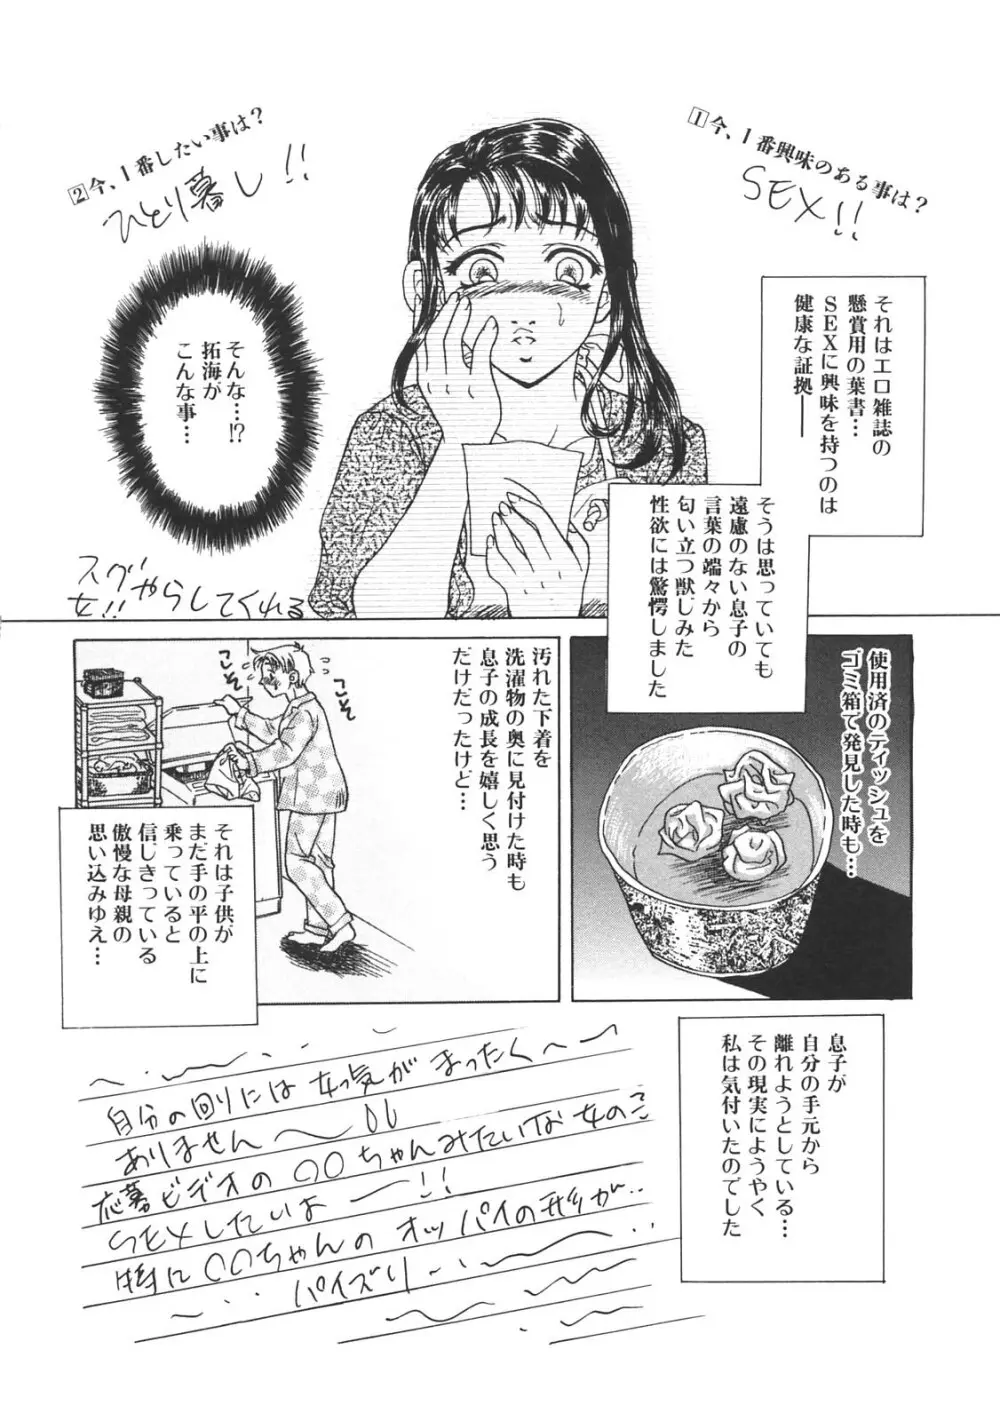 1今、1番興味のある事は?
SEX!!
2今、1番したい事は?
ひとり暮し!!
それはエロ雑誌の
懸賞用の葉書…
SEXに興味を持つのは
健康な証拠――
そんな…!?
拓海が
こんな事…
そうは思っていても
遠慮のない息子の
言葉の端々から
匂い立つ獣じみた
性欲には驚愕しました
スグやらしてくれる
女!!
使用済のティッシュを
ゴミ箱で発見した時も…
汚れた下着を
洗濯物の奥に見付けた時も
息子の成長を嬉しく思う
だけだったけど…
こそ
こそ
それは子供が
まだ手の平の上に
乗っていると
信じきっている
傲慢な母親の
思い込みゆえ…
息子が
自分の手元から
離れようとしている…
その現実にようやく
私は気付いたのでした
自分の回りには女っ気がまったく
ありません
応募ビデオの〇〇ちゃんみたいな女のこ
SEXしたいよー!!
特に〇〇ちゃんのオッパイの形が..
パイズリ